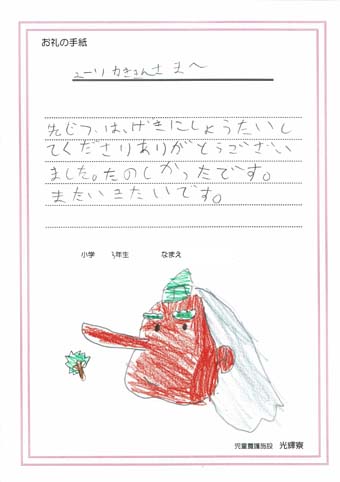 お礼の手紙
先じつは、げきにしょうたいし
てくださりありがとうござい
ました。たのしかったです。
またいきたいです。
小学 3年生 なまえ
児童養護施設 光輝寮